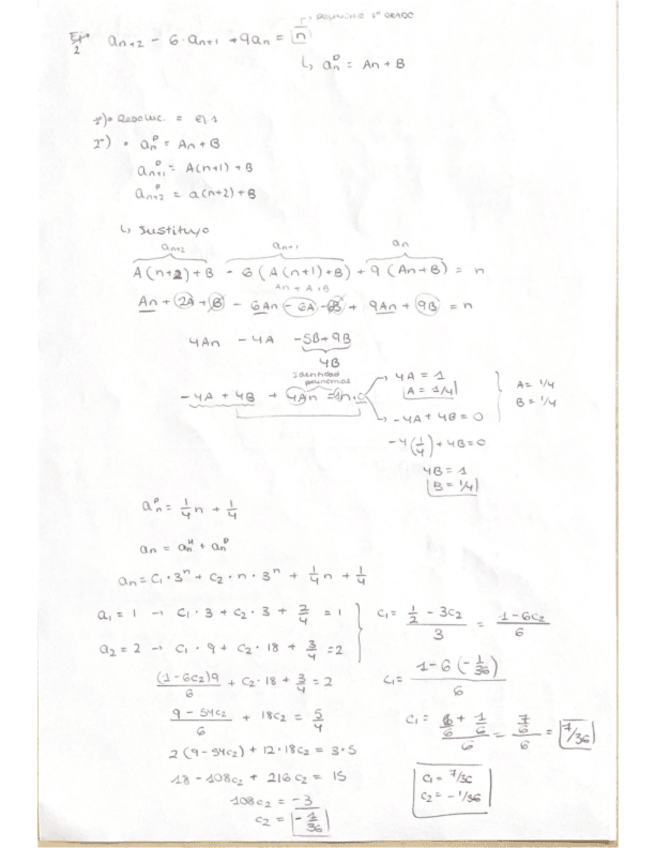 POLINOMIO 1º GRADO
Ej 2 an+2 - 6·an+1 + 9an = n
↳ anᴾ = An + B
I) Resoluc. = Ej 1
II) · anᴾ = An + B
an+1ᴾ = A(n+1) + B
an+2ᴾ = a(n+2) + B
↳ Sustituyo
an+2 an+1 an
A(n+2) + B - 6(A(n+1)+B) + 9(An+B) = n
An + A + B
An + 2A + B - 6An - 6A - 6B + 9An + 9B = n
4An - 4A -5B+9B
4B
Identidad
polinomios
-4A + 4B + 4An = 1n+0
4A = 1
A = 1/4
-4A + 4B = 0
-4(1/4) + 4B = 0
4B = 1
B = 1/4
A = 1/4
B = 1/4
anᴾ = 1/4 n + 1/4
an = anᴴ + anᴾ
an = C1·3ⁿ + C2·n·3ⁿ + 1/4 n + 1/4
a1 = 1 → C1·3 + C2·3 + 2/4 = 1
a2 = 2 → C1·9 + C2·18 + 3/4 = 2
(1-6C2)9/6 + C2·18 + 3/4 = 2
9 - 54C2/6 + 18C2 = 5/4
2(9-54C2) + 12·18C2 = 3·5
18 - 108C2 + 216C2 = 15
108C2 = -3
C2 = -1/36
C1 = (1/2 - 3C2)/3 = (1-6C2)/6
C1 = (1-6(-1/36))/6
C1 = (6/6 + 1/6)/6 = (7/6)/6 = 7/36
C1 = 7/36
C2 = -1/36